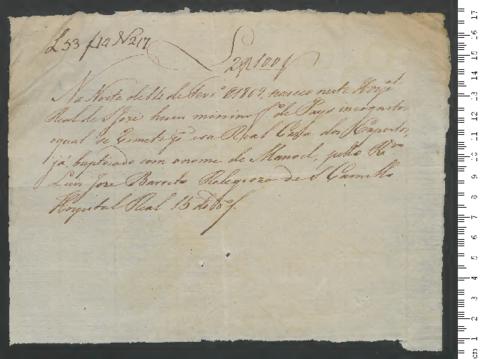 L 53 f 12 N 217
2$100
Na Noite de 14 de Fevr.º de 1802, nasceo neste Hospl.
Real de S. José hum menino f.º de Pays incognitos,
o qual se remete p.ª essa Real Caza dos Expostos,
já baptizado com o nome de Manoel, pello R.do
Luis José Barreto Religiozo de S. Camillo
Hospital Real 15 de